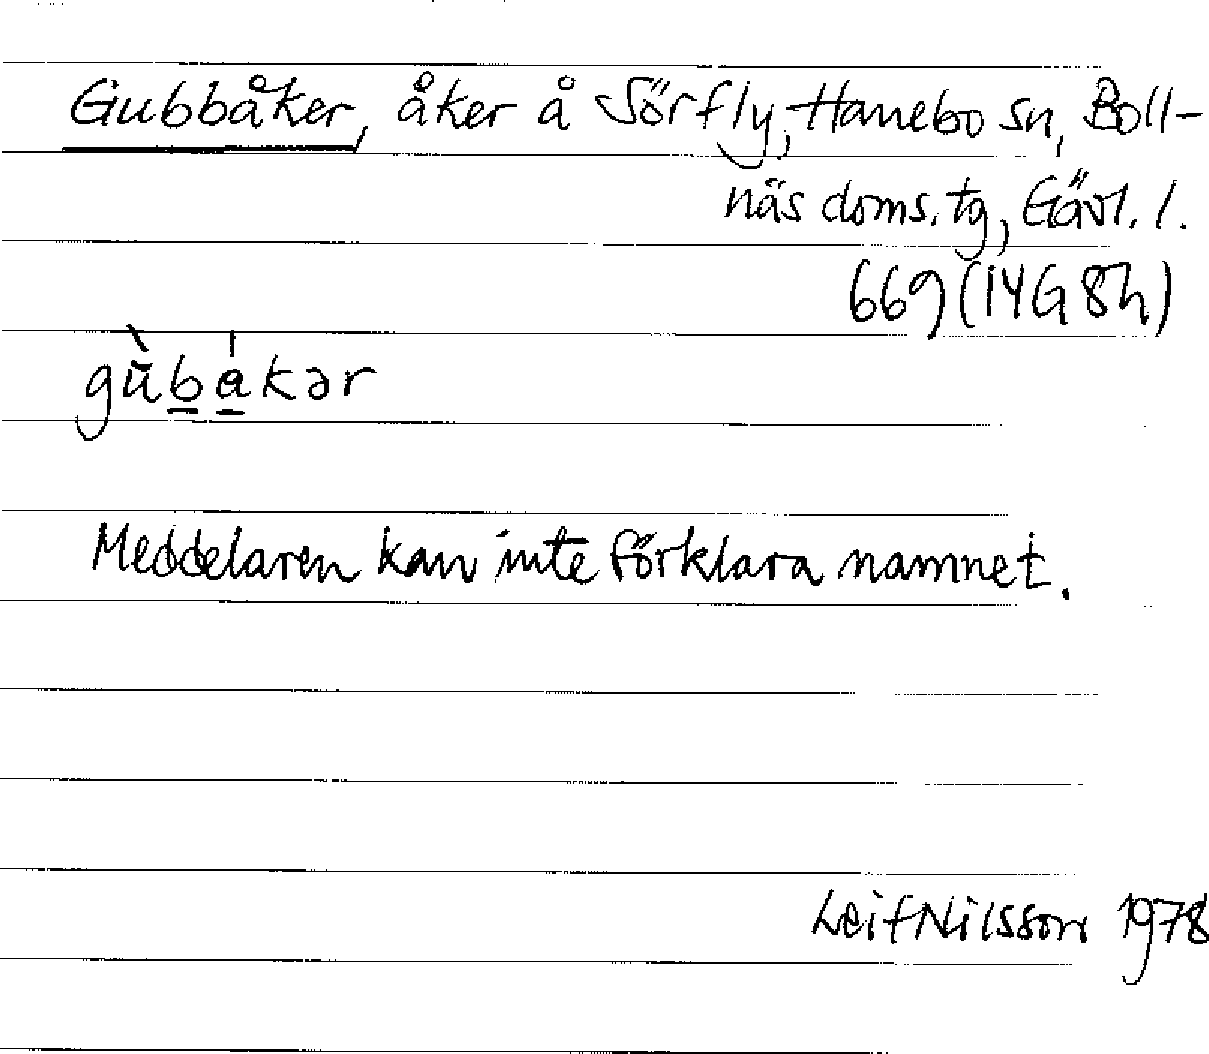 Gubbåker, åker å Sörfly, Hanebo sn, Boll-
näs doms. tg, Gävl. l.
669 (14G8h)
gùbákər
Meddelaren kan inte förklara namnet.
Leif Nilsson 1978